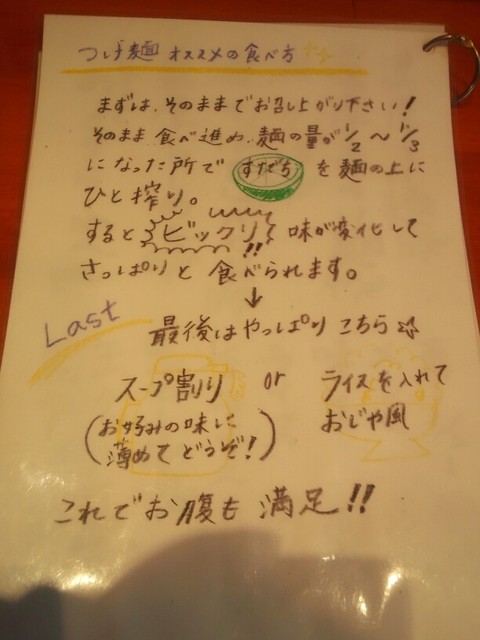 つけ麺 オススメの食べ方
まずは、そのままでお召し上がり下さい!
そのまま食べ進め、麺の量が1/2〜1/3
になった所で すだち を麺の上に
ひと搾り。
すると ビックリ!! 味が変化して
さっぱりと食べられます。
↓
Last
最後はやっぱりこちら☆
スープ割り or ライスを入れて
おじや風
(お好みの味に
薄めてどうぞ!)
これでお腹も満足!!